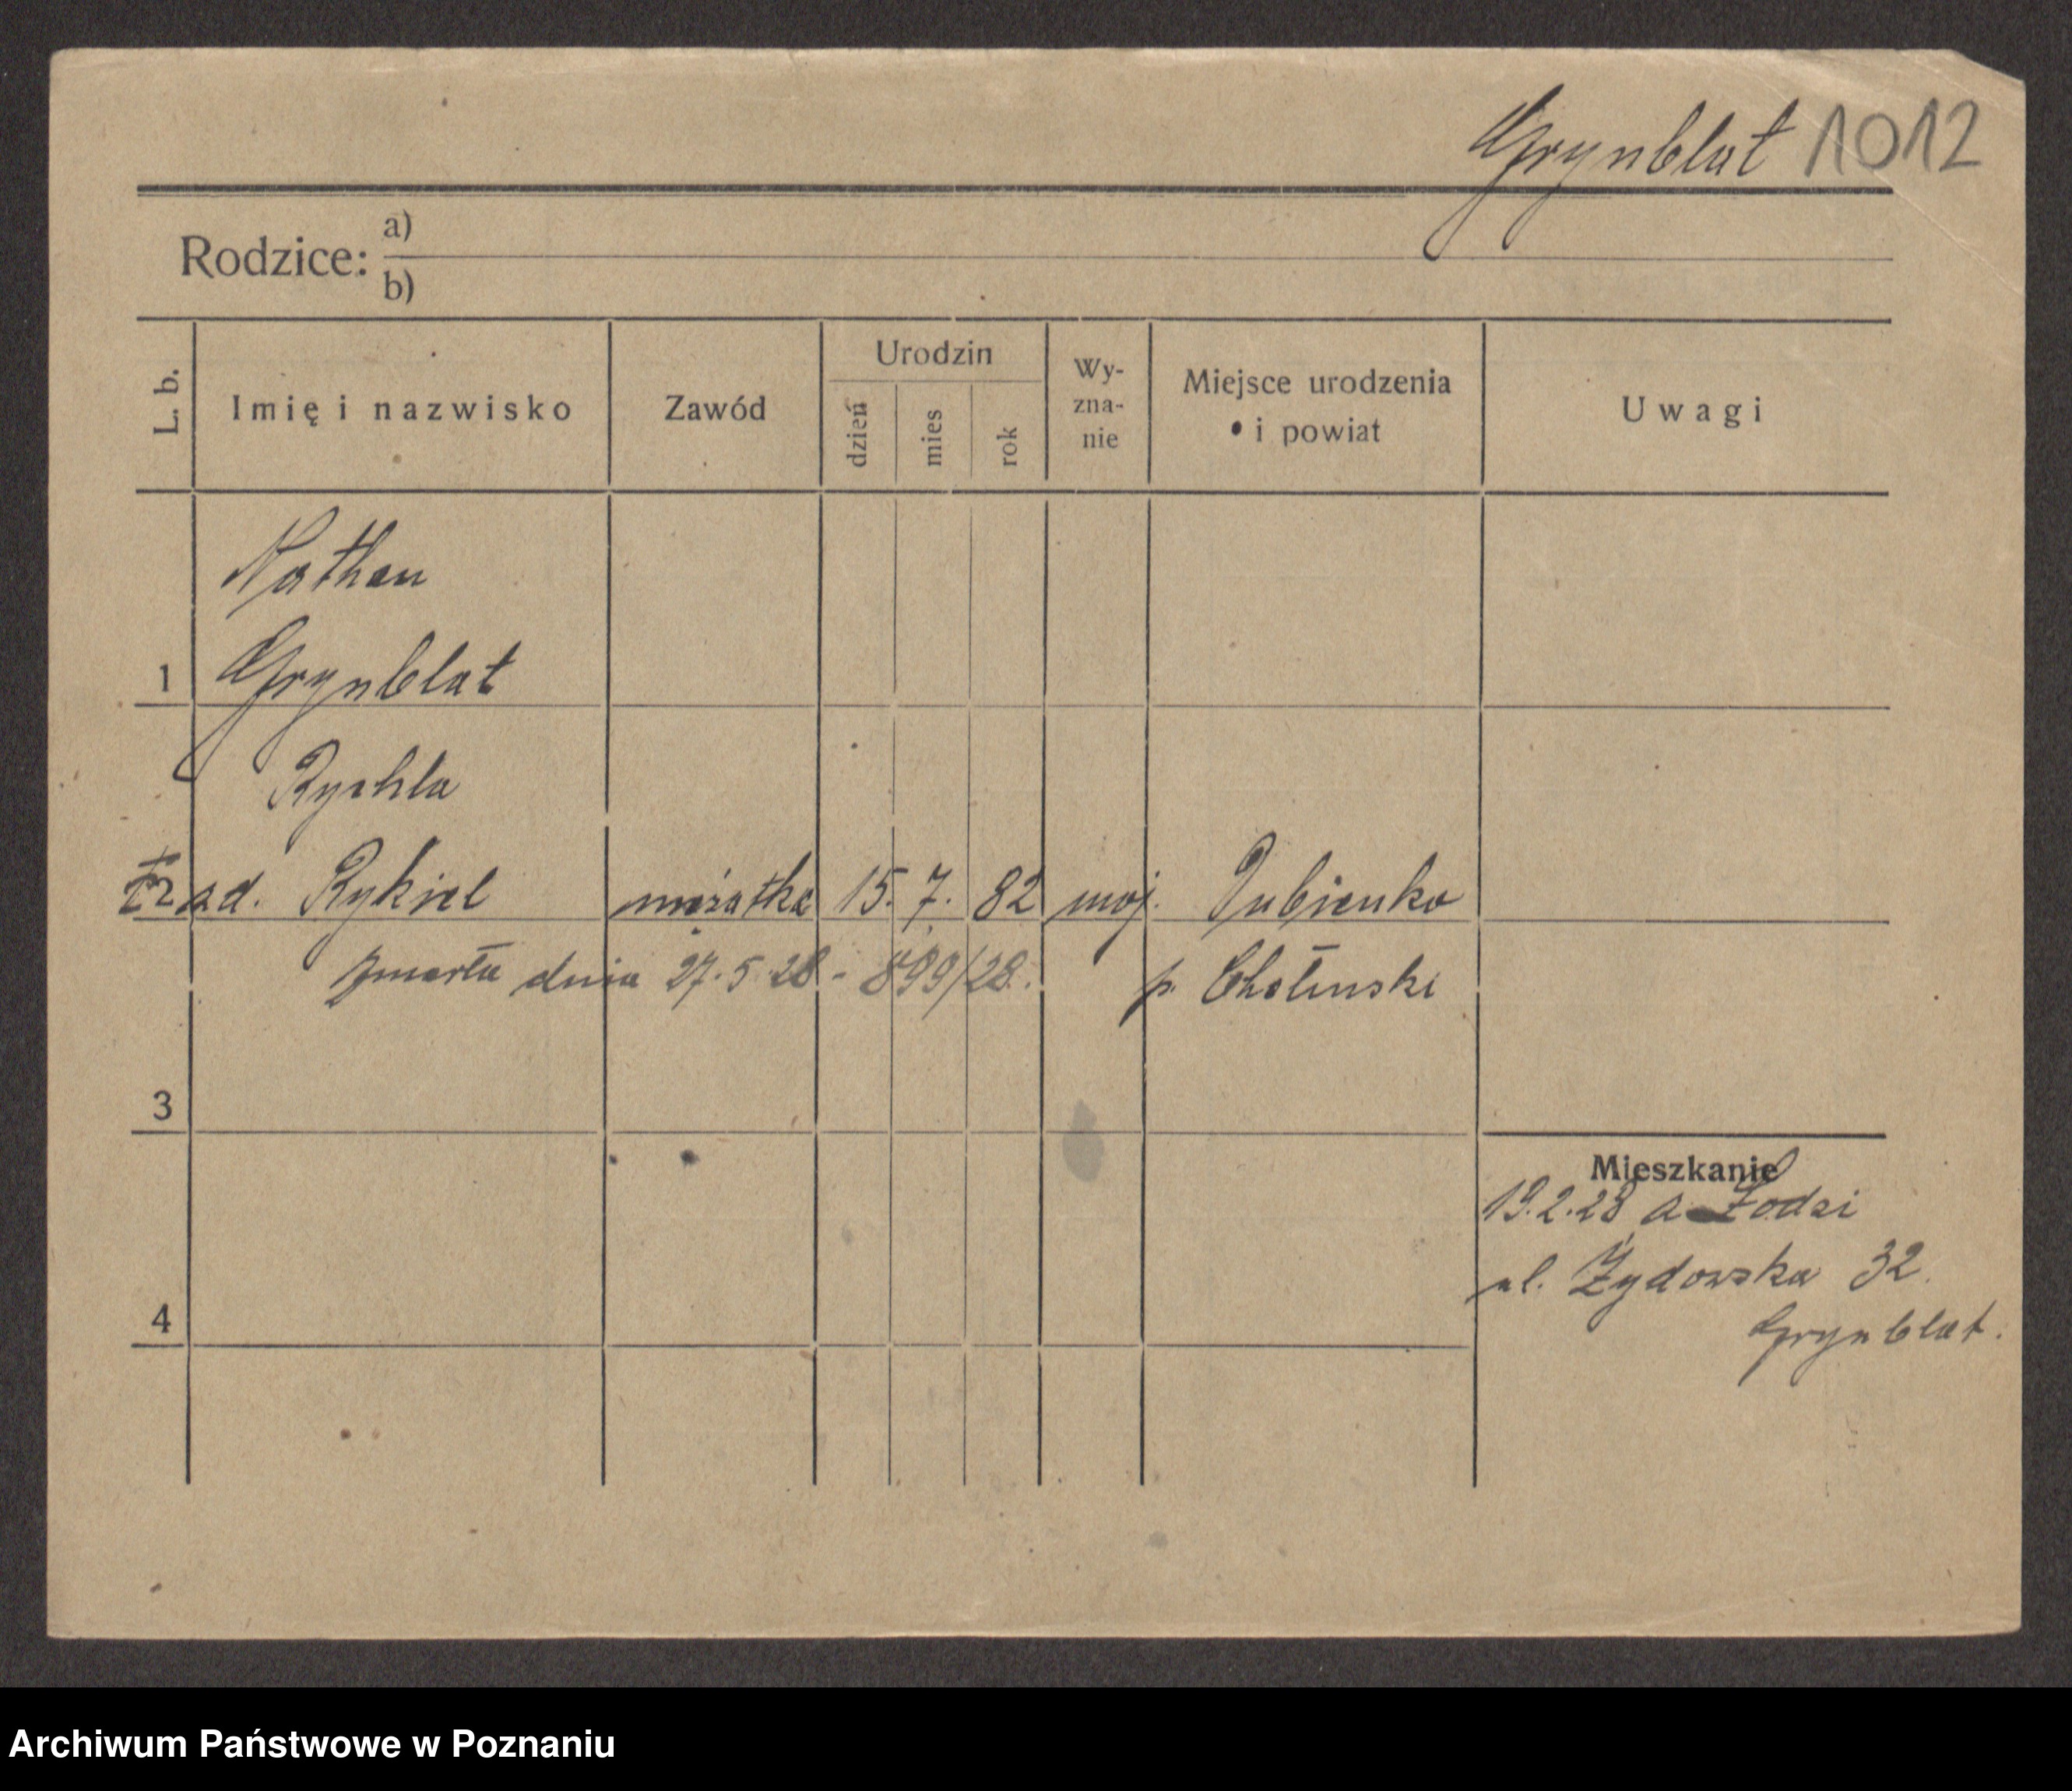 Grynblat 1012
Rodzice: a)
b)
L. b.
Imię i nazwisko
Zawód
Urodzin
dzień
mies
rok
Wy-
zna-
nie
Miejsce urodzenia
i powiat
Uwagi
Nathan
1 Grynblat
Rychla
2 zd. Rykiel mężatka 15. 7. 82 moj. Dubienka
zmarła dnia 27.5.28 - 899/28. p. Chełmski
3
Mieszkanie
19.2.28 z Łodzi
ul. Żydowska 32
4
Grynblat.
Archiwum Państwowe w Poznaniu